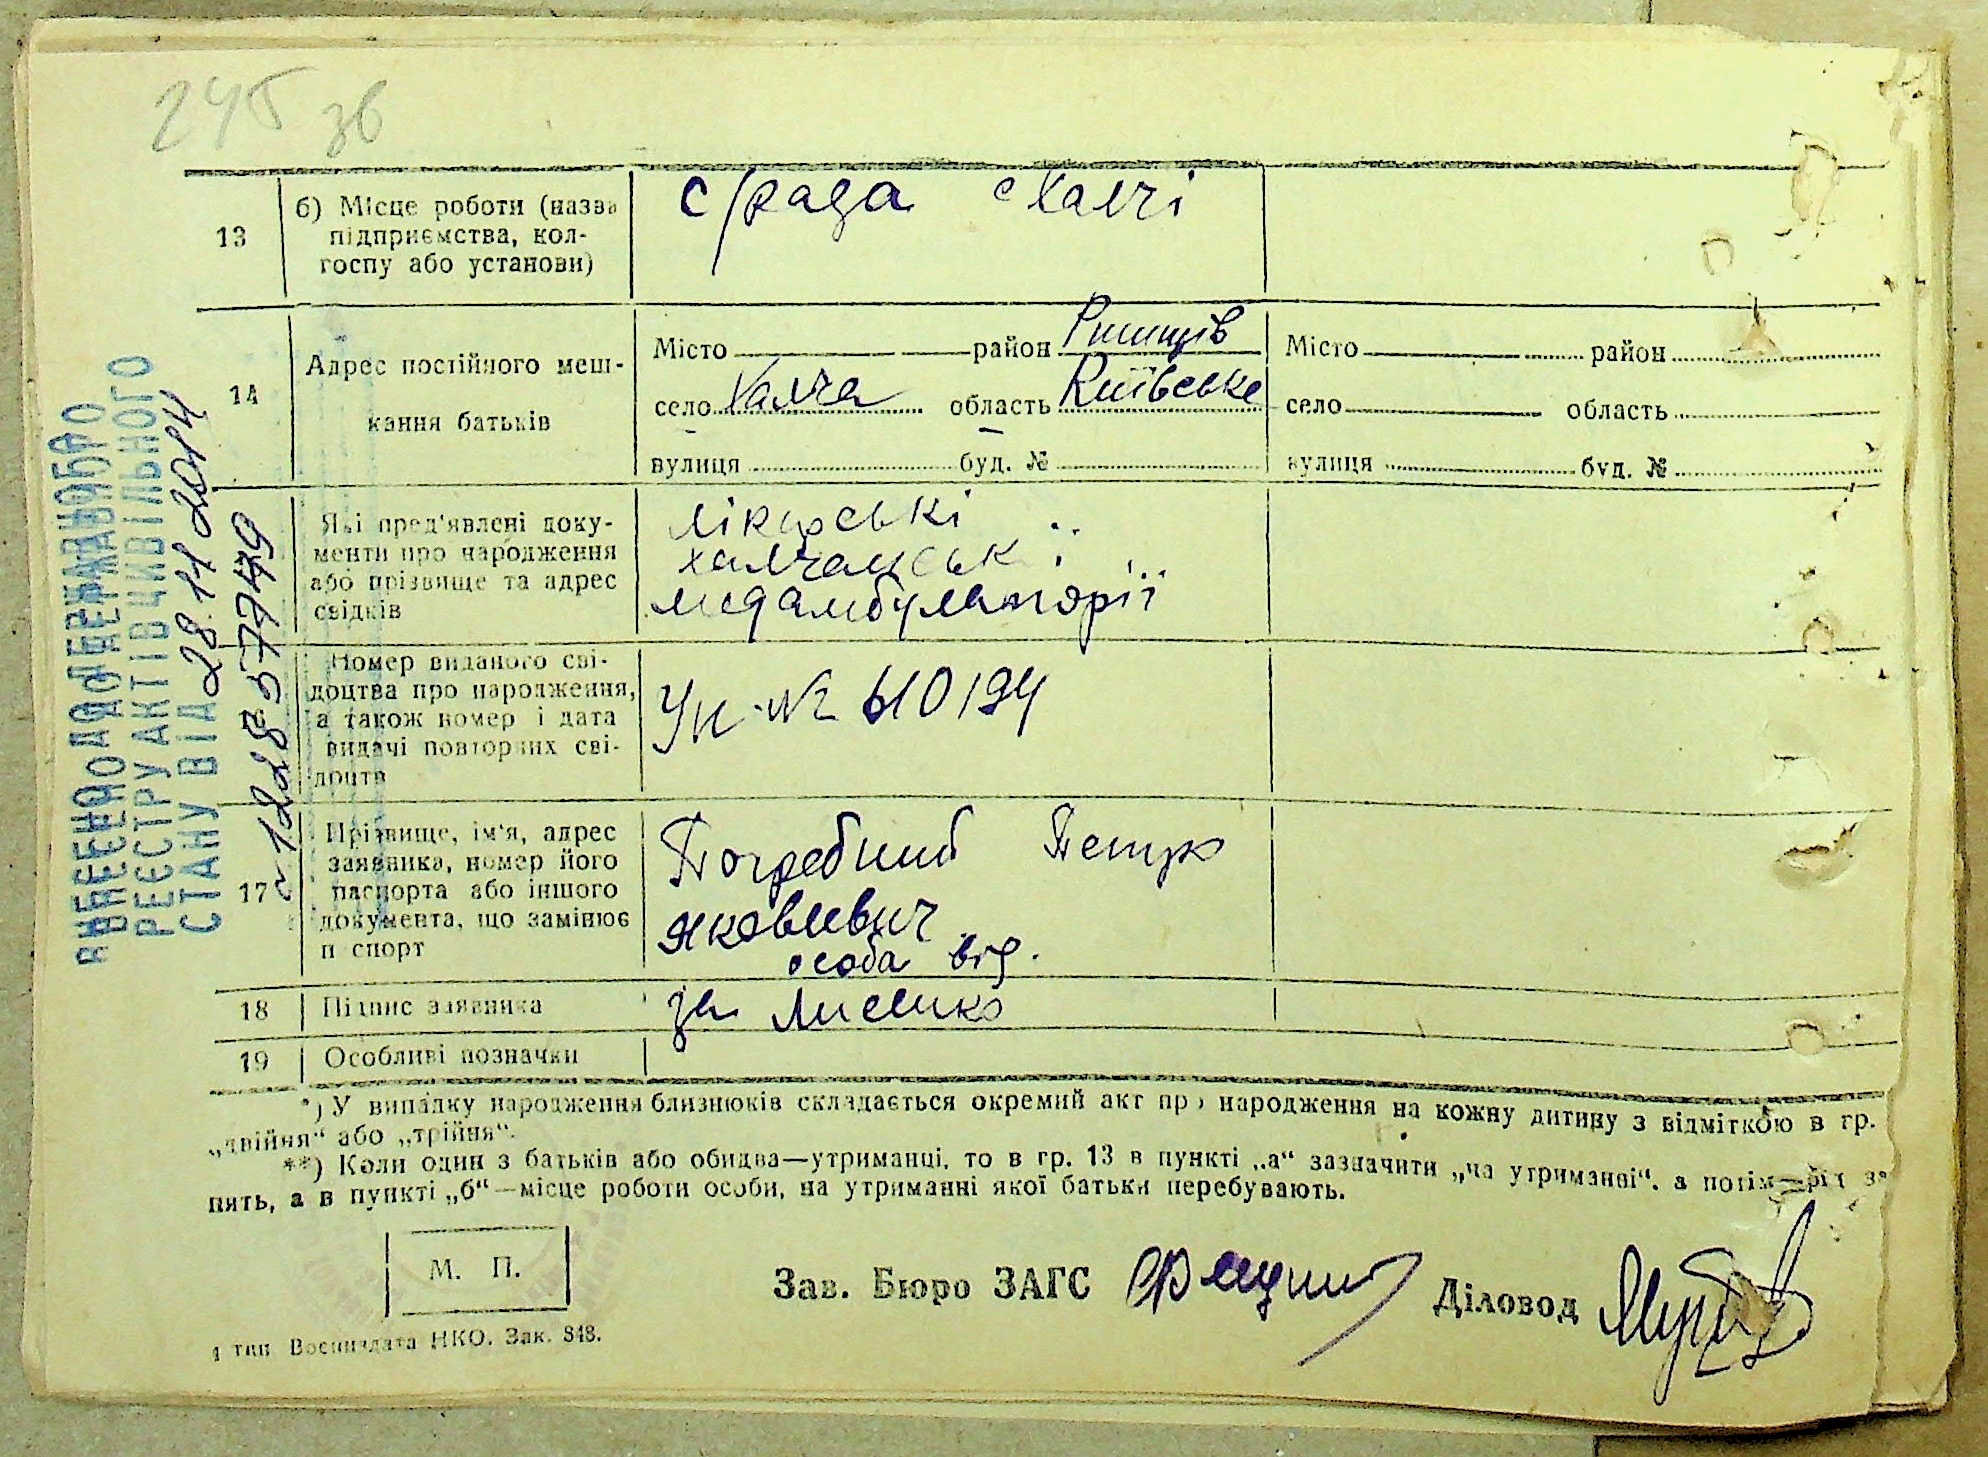 245 зв
13
б) Місце роботи (назва
підприємства, кол-
госпу або установи)
с/рада с Халчі
14
Адрес постійного меш-
кання батьків
Місто район Ржищів
село Халча область Київське
вулиця буд. №
Місто район
село область
вулиця буд. №
Які пред'явлені доку-
менти про народження
або прізвище та адрес
свідків
лікарські
халчанськ
медамбулаторії
Номер виданого сві-
доцтва про народження,
а також номер і дата
видачі повторних сві-
доцтв
№ 610194
17
Прізвище, ім'я, адрес
заявника, номер його
паспорта або іншого
документа, що замінює
п спорт
Погребний Петро
Яковлевич
особа від.
18
Підпис заявника
за Лисенко
19
Особливі позначки
*) У випадку народження близнюків складається окремий акт про народження на кожну дитину з відміткою в гр.
„двійня“ або „трійня“.
**) Коли один з батьків або обидва—утриманці, то в гр. 13 в пункті „а“ зазначити „на утриманні“, а потім—рід за
нять, а в пункті „б“—місце роботи особи, на утриманні якої батьки перебувають.
М. П.
Зав. Бюро ЗАГС
Діловод
1 тип Воениздата НКО. Зак. 848.
ВНЕСЕНО ДО ДЕРЖАВНОГО
РЕЄСТРУ АКТІВ ЦИВІЛЬНОГО
СТАНУ ВІД 28.11.2014